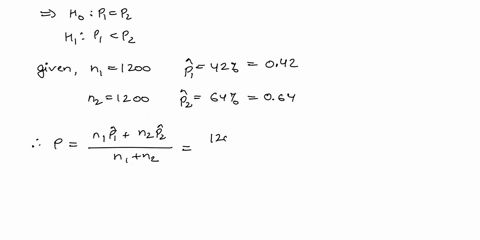 ⇒ H₀ : P₁ = P₂
H₁ : P₁ < P₂
given, n₁ = 1200 p̂₁ = 42% = 0.42
n₂ = 1200 p̂₂ = 64% = 0.64
∴ P = (n₁p̂₁ + n₂p̂₂) / (n₁ + n₂) = 12